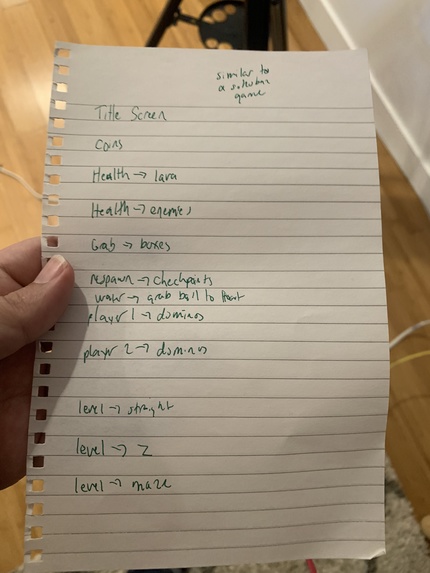 similar to
a sokoban
game
Title Screen
Coins
Health → lava
Health → enemies
Grab → boxes
respawn → checkpoints
water → grab ball to float
player 1 → dominos
player 2 → dominos
level → straight
level → Z
level → maze